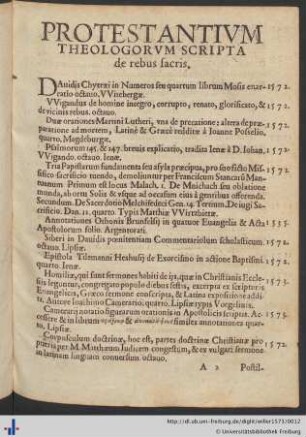 PROTESTANTIVM
THEOLOGORVM SCRIPTA
de rebus sacris.
DAuidis Chytræi in Numeros seu quartum librum Mosis enar- 1572.
ratio octauo. VVitebergæ.
VVigandus de homine integro, corrupto, renato, glorificato, & 1572.
de vicinis rebus. octauo.
Duæ orationes Martini Lutheri, vna de precatione: altera de præ-
paratione ad mortem, Latinè & Græcè redditæ à Ioanne Posselio,
quarto. Magdeburgæ.
Psalmorum 145. & 147. breuis explicatio, tradita Ienæ à D. Iohan. 1572.
VVigando. octauo. Ienæ.
Tria Papistarum fundamenta seu asyla præcipua, pro suo ficto Mis- 1572.
sifico sacrificio mundo, demoliuntur per Franciscum Stancarũ Man-
tuanum. Primum est locus Malach. 1. De Minchach seu oblatione
munda, ab ortu Solis & vsque ad occasum eius à gentibus offerenda.
Secundum. De Sacerdotio Melchisedeci Gen. 14. Tertium. De iugi Sa-
crificio. Dan. 11. quarto. Typis Matthiæ
Annotationes Othonis Brunfelsij in quatuor Euangelia & Acta 1535.
Apostolorum folio. Argentorati.
Siberi in Dauidis pœnitentium Commentariolum scholasticum. 1572.
octauo. Lipsiæ.
Epistola Tilemanni Heshusij de Exorcismo in actione Baptismi. 1572.
quarto. Ienæ.
Homiliæ, qui sunt sermones habiti de ijs, quæ in Christianis Eccle- 1573.
sijs leguntur, congregato populo diebus festis, excerpta ex scriptoris
Euangelicis, Græco sermone conscripta, & Latina expositione addi-
ta. Autore Ioachimo Camerario. quarto. Lipsiæ typis Vœgelinis.
Camerarij notatio figurarum orationis in Apostolicis scriptis. Ac- 1573.
cessêre & in librum & similes annotationes quar-
to. Lipsiæ.
Corpusculum doctrinæ, hoc est, partes doctrinæ Christianæ pro 1572.
pueris per M. Matthæum Iudicem congestum, & ex vulgari sermone
in latinam linguam conuersum octauo.
A 2 Postil-
http://dl.ub.uni-freiburg.de/diglit/willer1573/0012
© Universitätsbibliothek Freiburg